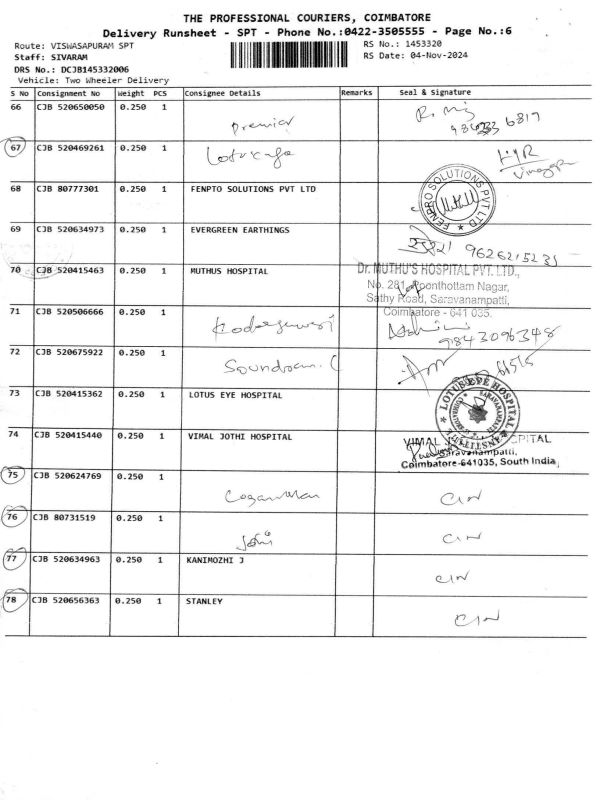 THE PROFESSIONAL COURIERS, COIMBATORE
Delivery Runsheet - SPT - Phone No.:0422-3505555 - Page No.:6
Route: VISWASAPURAM SPT
RS No.: 1453320
Staff: SIVARAM
RS Date: 04-Nov-2024
DRS No.: DCJB145332006
Vehicle: Two Wheeler Delivery
S No Consignment No Weight PCS Consignee Details Remarks Seal & Signature
66 CJB 520650050 0.250 1 Premier
67 CJB 520469261 0.250 1
68 CJB 80777301 0.250 1 FENPTO SOLUTIONS PVT LTD
FENPRO SOLUTIONS PVT LTD
69 CJB 520634973 0.250 1 EVERGREEN EARTHINGS
70 CJB 520415463 0.250 1 MUTHUS HOSPITAL
Dr. MUTHU'S HOSPITAL PVT. LTD.,
No. 281, Poonthottam Nagar,
Sathy Road, Saravanampatti,
Coimbatore - 641 035.
71 CJB 520506666 0.250 1
9843096348
72 CJB 520675922 0.250 1
73 CJB 520415362 0.250 1 LOTUS EYE HOSPITAL
LOTUS EYE HOSPITAL
74 CJB 520415440 0.250 1 VIMAL JOTHI HOSPITAL
VIMAL
Saravanampatti,
Coimbatore-641035, South India
75 CJB 520624769 0.250 1 CIN
76 CJB 80731519 0.250 1 CIN
77 CJB 520634963 0.250 1 KANIMOZHI J CIN
78 CJB 520656363 0.250 1 STANLEY CIN